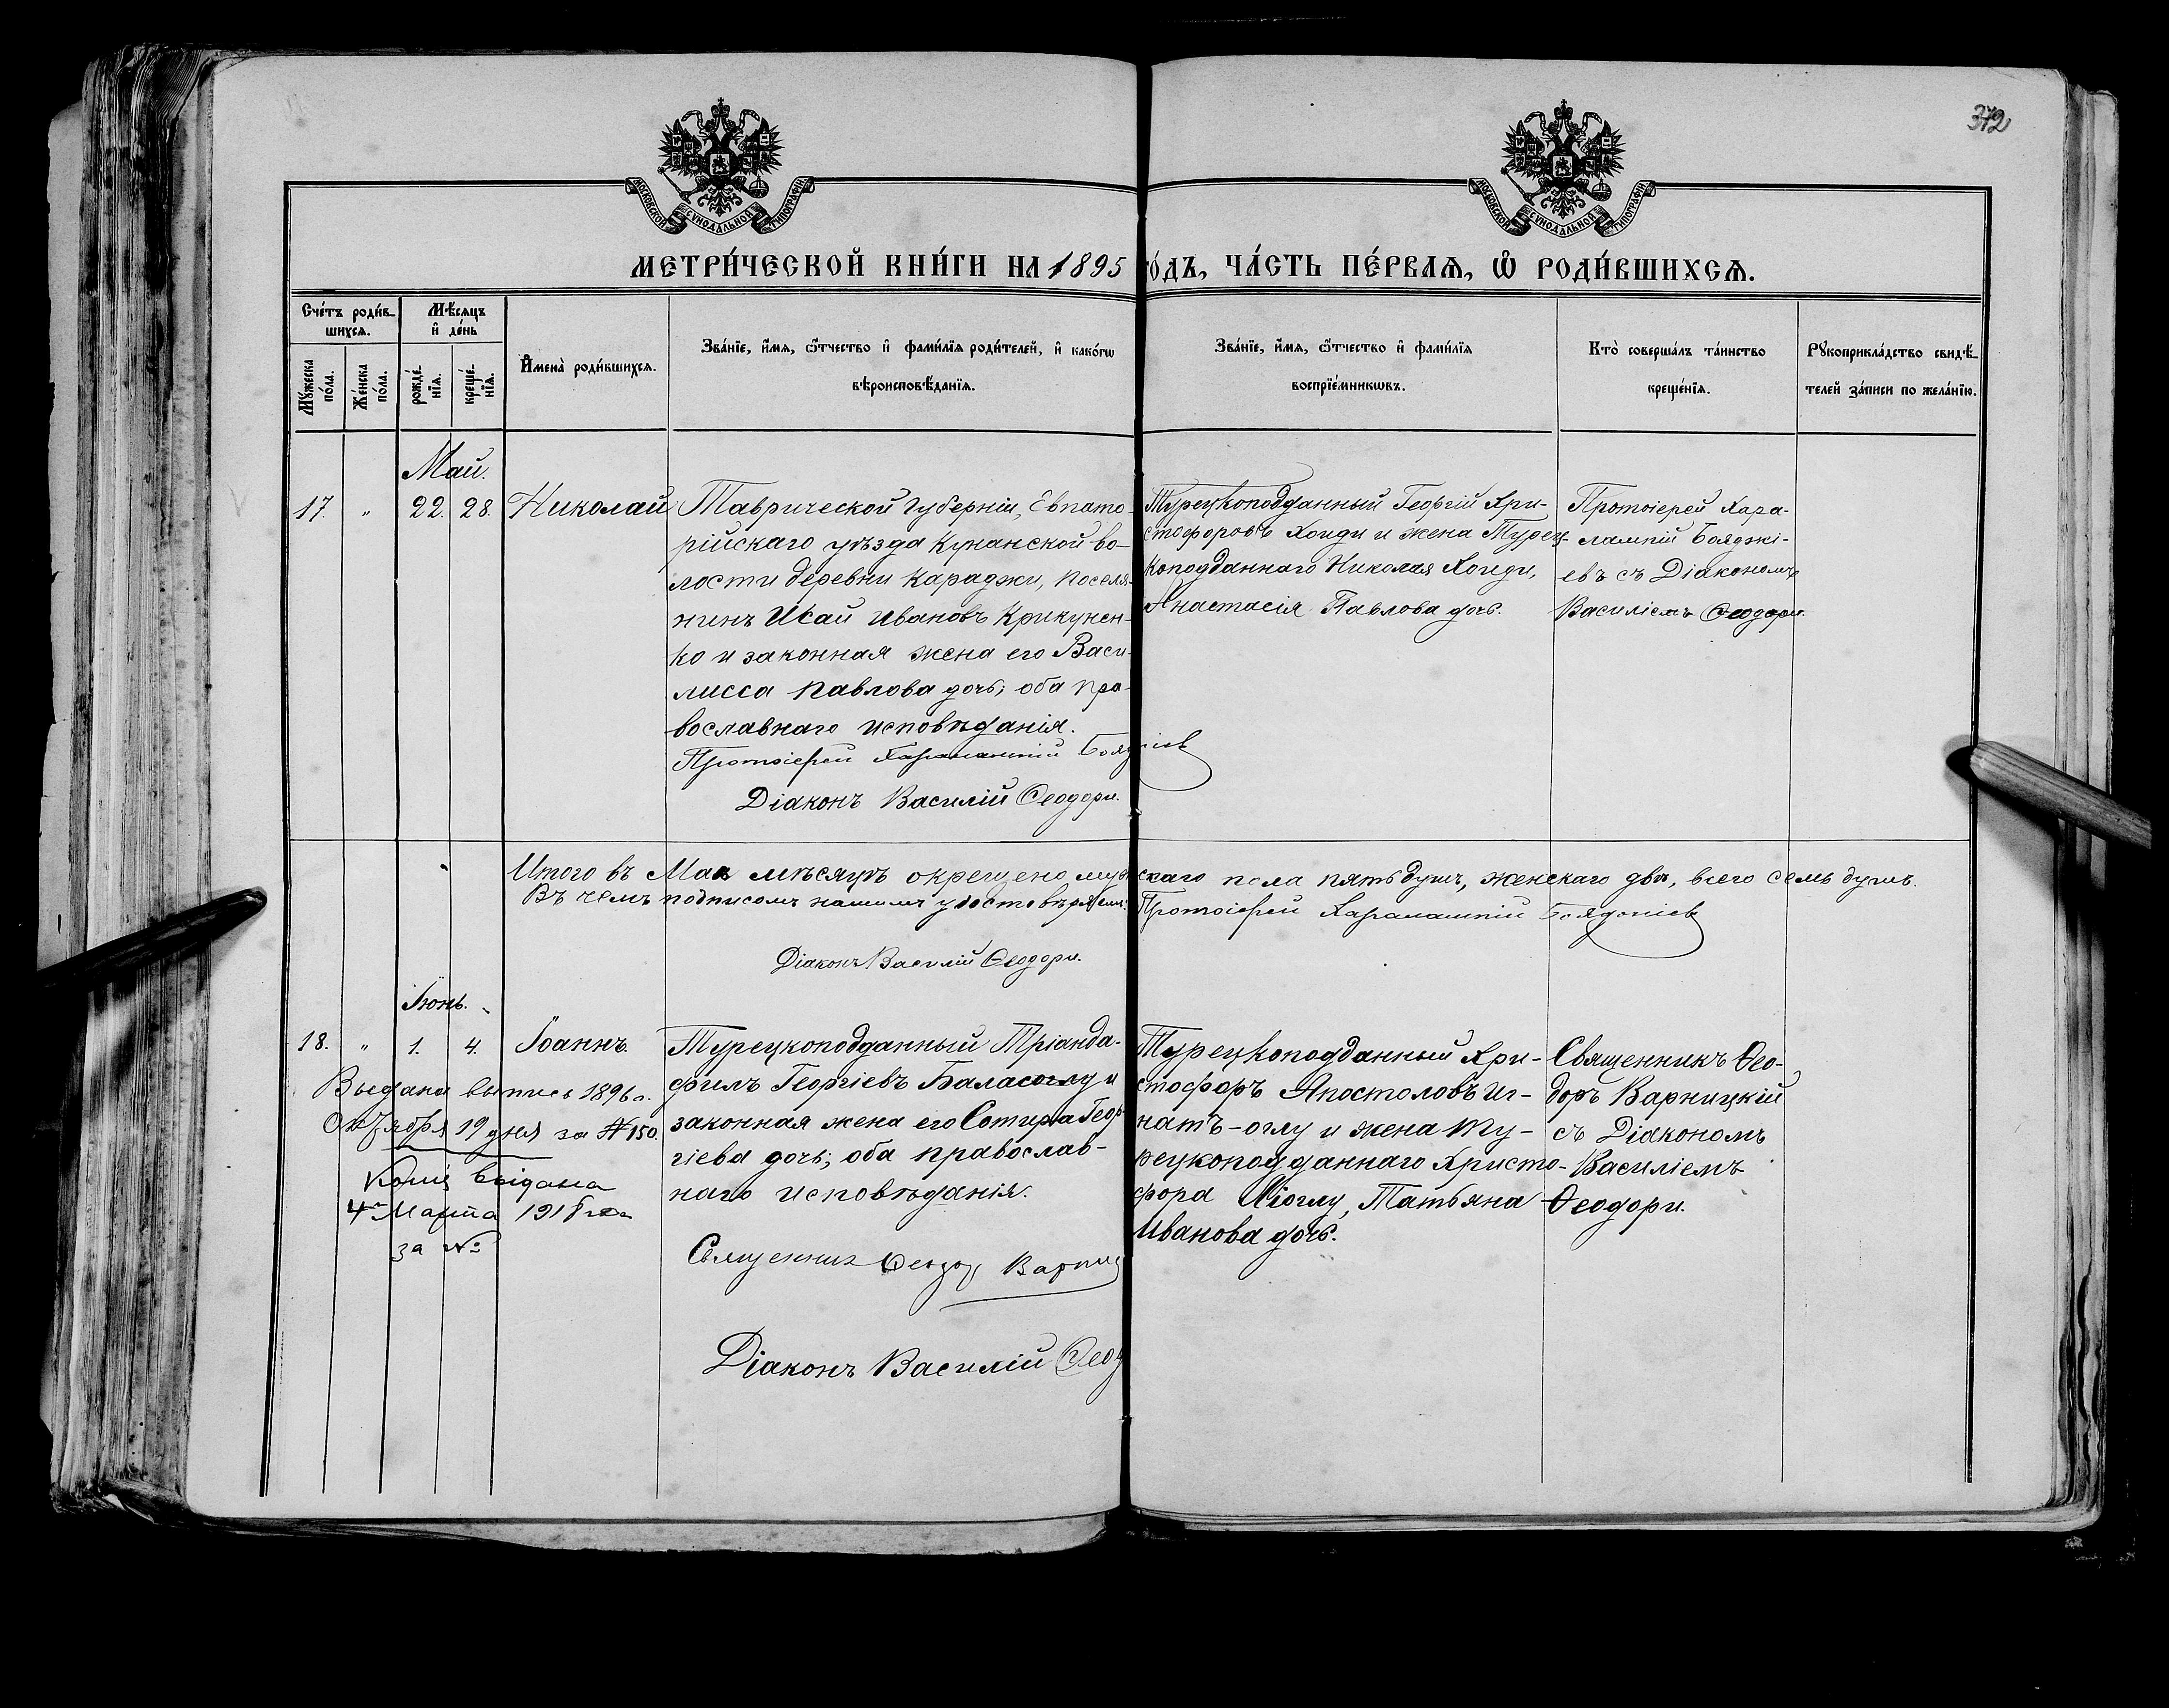 372
МОСКОВСКОЙ СУНОДАЛЬНОЙ ТИПОГРАФІИ
МОСКОВСКОЙ СУНОДАЛЬНОЙ ТИПОГРАФІИ
МЕТРИ́ЧЕСКОЙ КНИ́ГИ НА 1895 го́дъ, ЧА́СТЬ ПЕ́РВАѦ, Ѿ РОДИ́ВШИХСѦ.
Сче́тъ роди́в-
шихсѧ.
Мѣ́сѧцъ
и҆ де́нь
Мꙋжеска
по́ла.
Же́нска
по́ла.
рожде́-
нїѧ.
креще́-
нїѧ.
И҆мена̀ роди́вшихсѧ.
Зва́нїе, и҆́мѧ, ѻ҆́тчество и҆ фами́лїѧ роди́телей, и҆ како́гѡ
вѣроисповѣ́данїѧ.
Зва́нїе, и҆́мѧ, ѻ҆́тчество и҆ фами́лїѧ
воспрїе́мникѡвъ.
Кто̀ соверша́лъ та́инство
креще́нїѧ.
Рꙋкоприкла́дство свидѣ́-
телей за́писи по жела́нїю.
Май.
17. " 22. 28. Николай
Таврической Губерніи, Евпато-
рійскаго уѣзда Кунанской во-
лости деревни Караджи, поселя-
нинъ Исай Ивановъ Крикунен-
ко и законная жена его Васи-
лисса Павлова дочь; оба пра-
вославнаго исповѣданія.
Протоіерей Харалампій Бояджіев
Діаконъ Василій Ѳеодори.
Турецкоподданный Георгій Хри-
стофоровъ Хоиди и жена Турец-
коподданнаго Николая Хоиди,
Анастасія Павлова дочь.
Протоіерей Хара-
лампій Бояджі-
евъ съ Діакономъ
Василіемъ Ѳеодори.
Итого въ Мае мѣсяцѣ окрещено мужскаго пола пять душъ, женскаго двѣ, всего семь душъ.
Въ чемъ подписомъ нашимъ удостовѣряемъ: Протоіерей Харалампій Бояджіев
Діаконъ Василій Ѳеодори.
Іюнь.
18. " 1. 4. Іоаннъ.
Выдана выпись 1896 г.
Октября 19 дня за № 150.
Копія выдана
4го Марта 191
за №
Турецкоподданный Тріанда-
филъ Георгіевъ Баласоглу и
законная жена его Сотира Геор-
гіева дочь; оба православ-
наго исповѣданія.
Священник Ѳеодор Варниц
Діаконъ Василій Ѳеод
Турецкоподданный Хри-
стофоръ Апостоловъ Иг-
натъ-оглу и жена Ту-
рецкоподданнаго Христо-
фора Ліоглу, Татьяна
Иванова дочь.
Священникъ Ѳео-
доръ Варницкій
съ Діакономъ
Василіемъ
Ѳеодори.